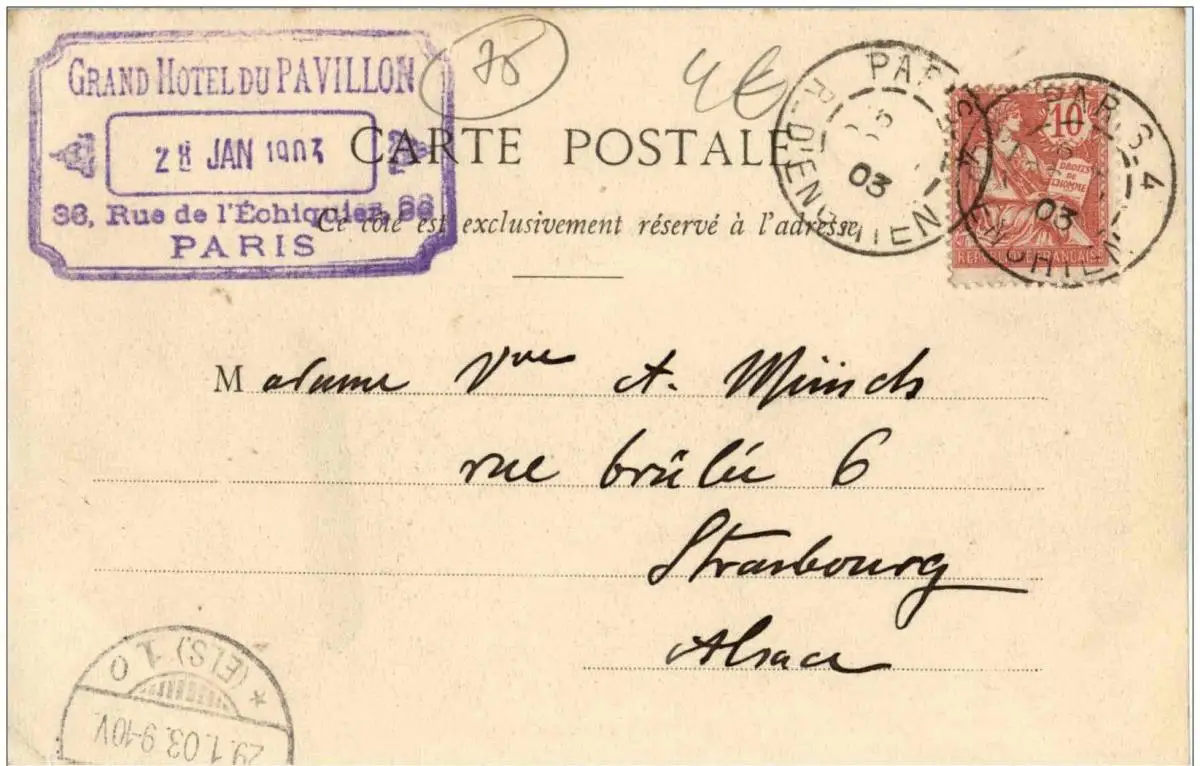 GRAND HOTEL DU PAVILLON
28 JAN 1903
36, Rue de l'Échiquier, 36
PARIS
75
4€
CARTE POSTALE
Ce côté est exclusivement réservé à l'adresse
PARIS 4
R. D'ENGHIEN
03
PARIS 4
ENGHIEN
03
10
DROITS DE L'HOMME
REPUBLIQUE FRANÇAISE
Madame Vve A. Münch
rue brûlée 6
Strasbourg
Alsace
* (ELS.) 1 0
29.1.03. 9-10V.